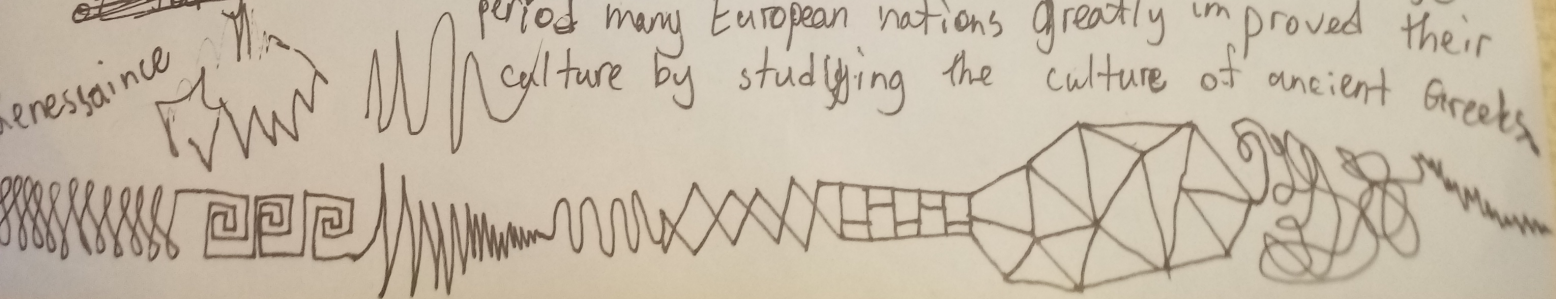 period many European nations greatly improved their
culture by studying the culture of ancient Greeks.
enessaince